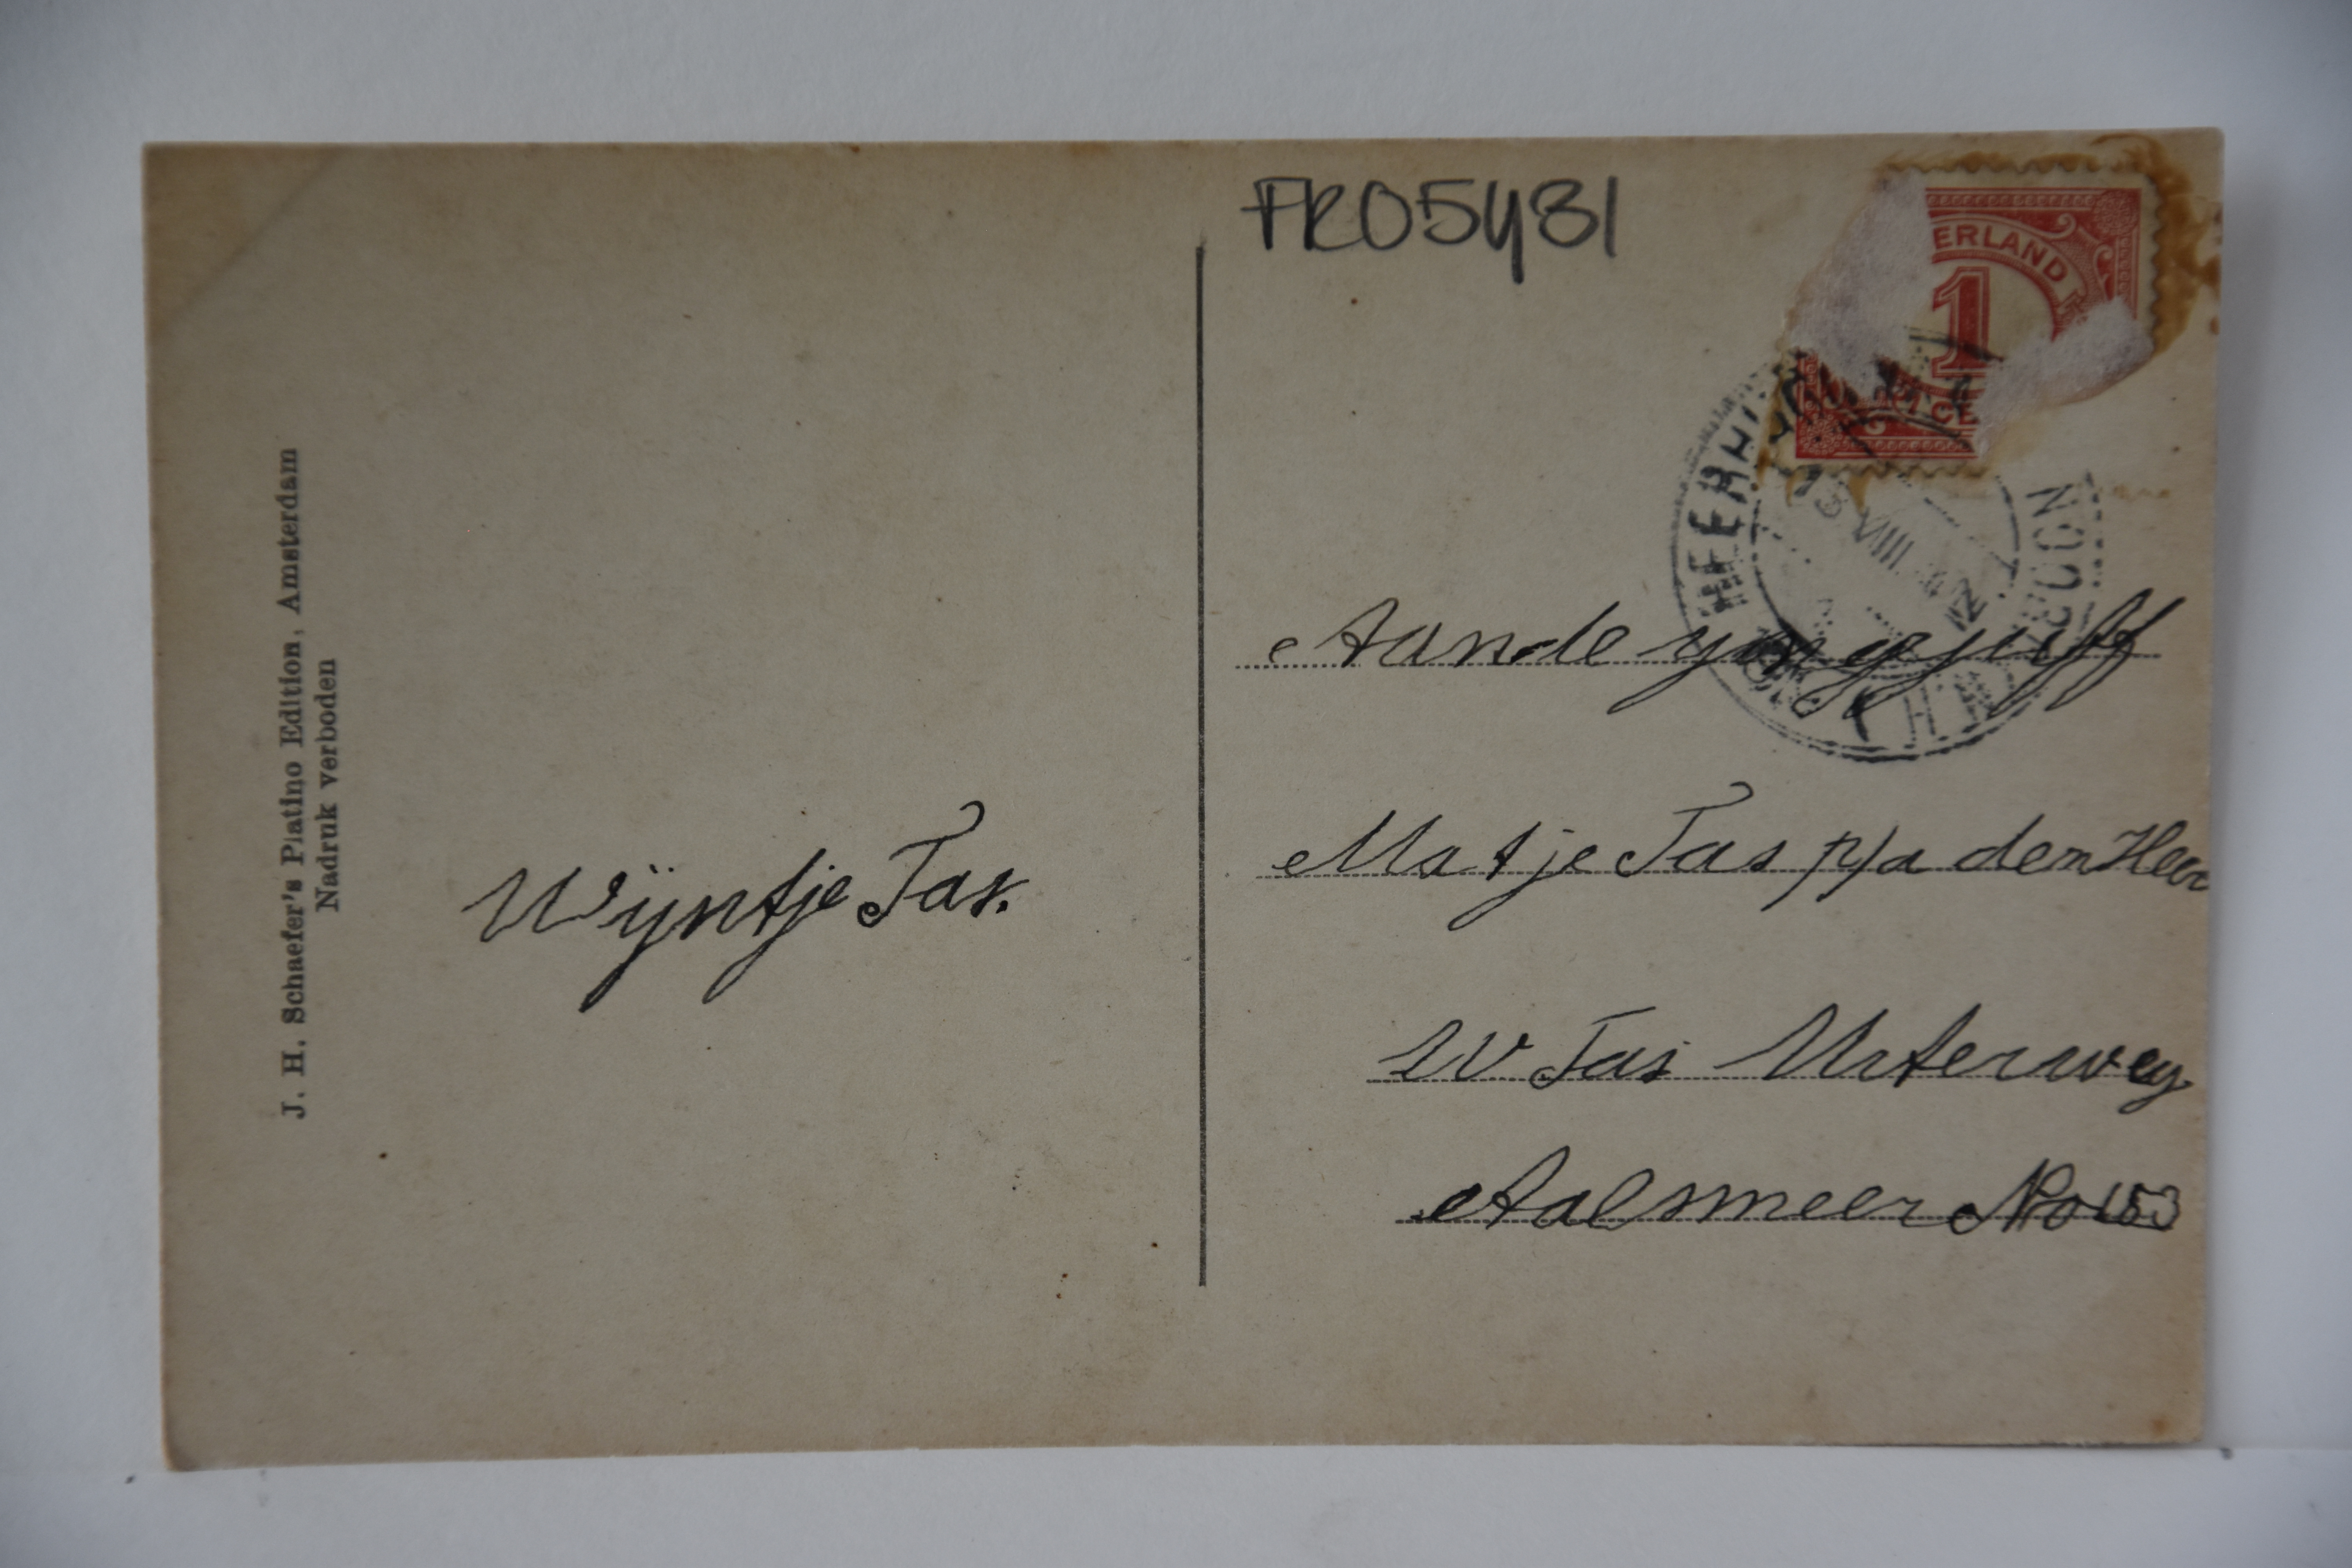 FRO5481
ERLAND
1
CE
VIII
12
Aan de yongejuff
Matje Tas p/a den Heer
W Tas Uiterweg
Aalsmeer No 153
Wijntje Tas.
J. H. Schaefer's Platino Edition, Amsterdam
Nadruk verboden